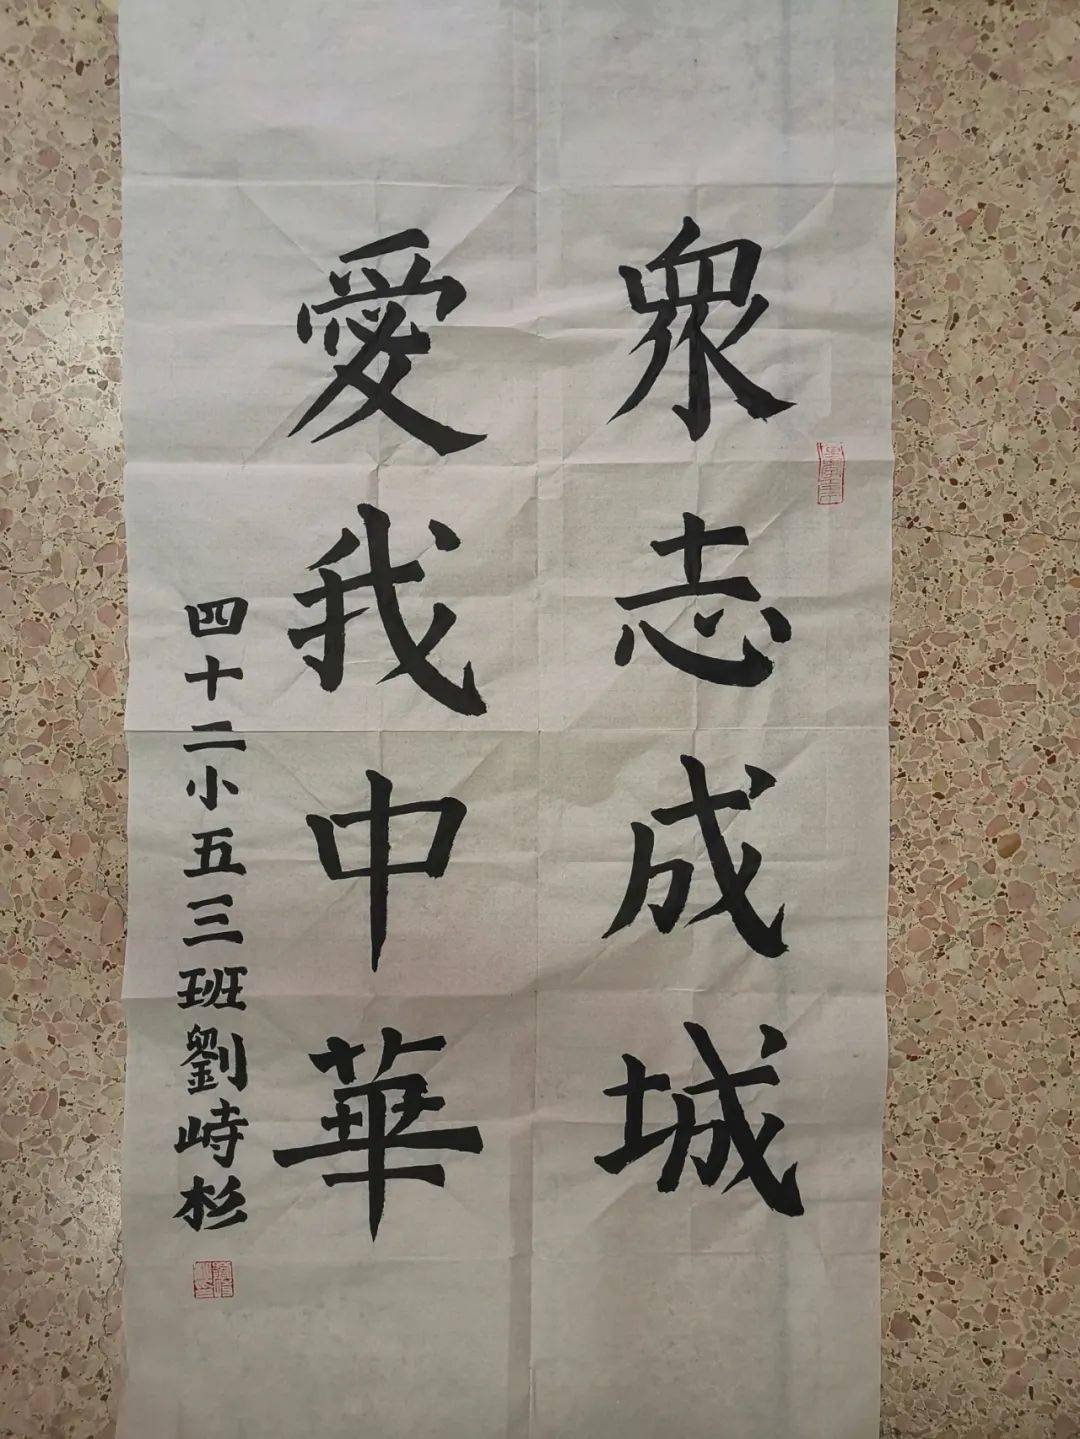 眾志成城
愛我中華
四十二小五三班劉峙杉